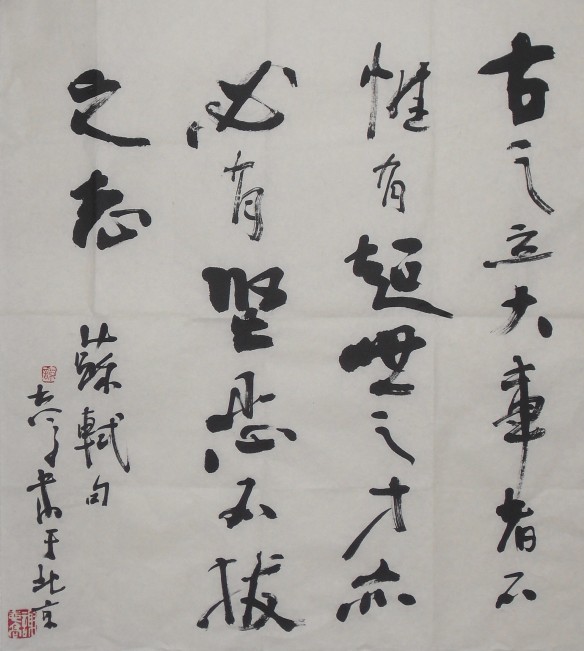 古之立大事者不
惟有超世之才亦
必有坚忍不拔
之志
蘇軾句
于北京